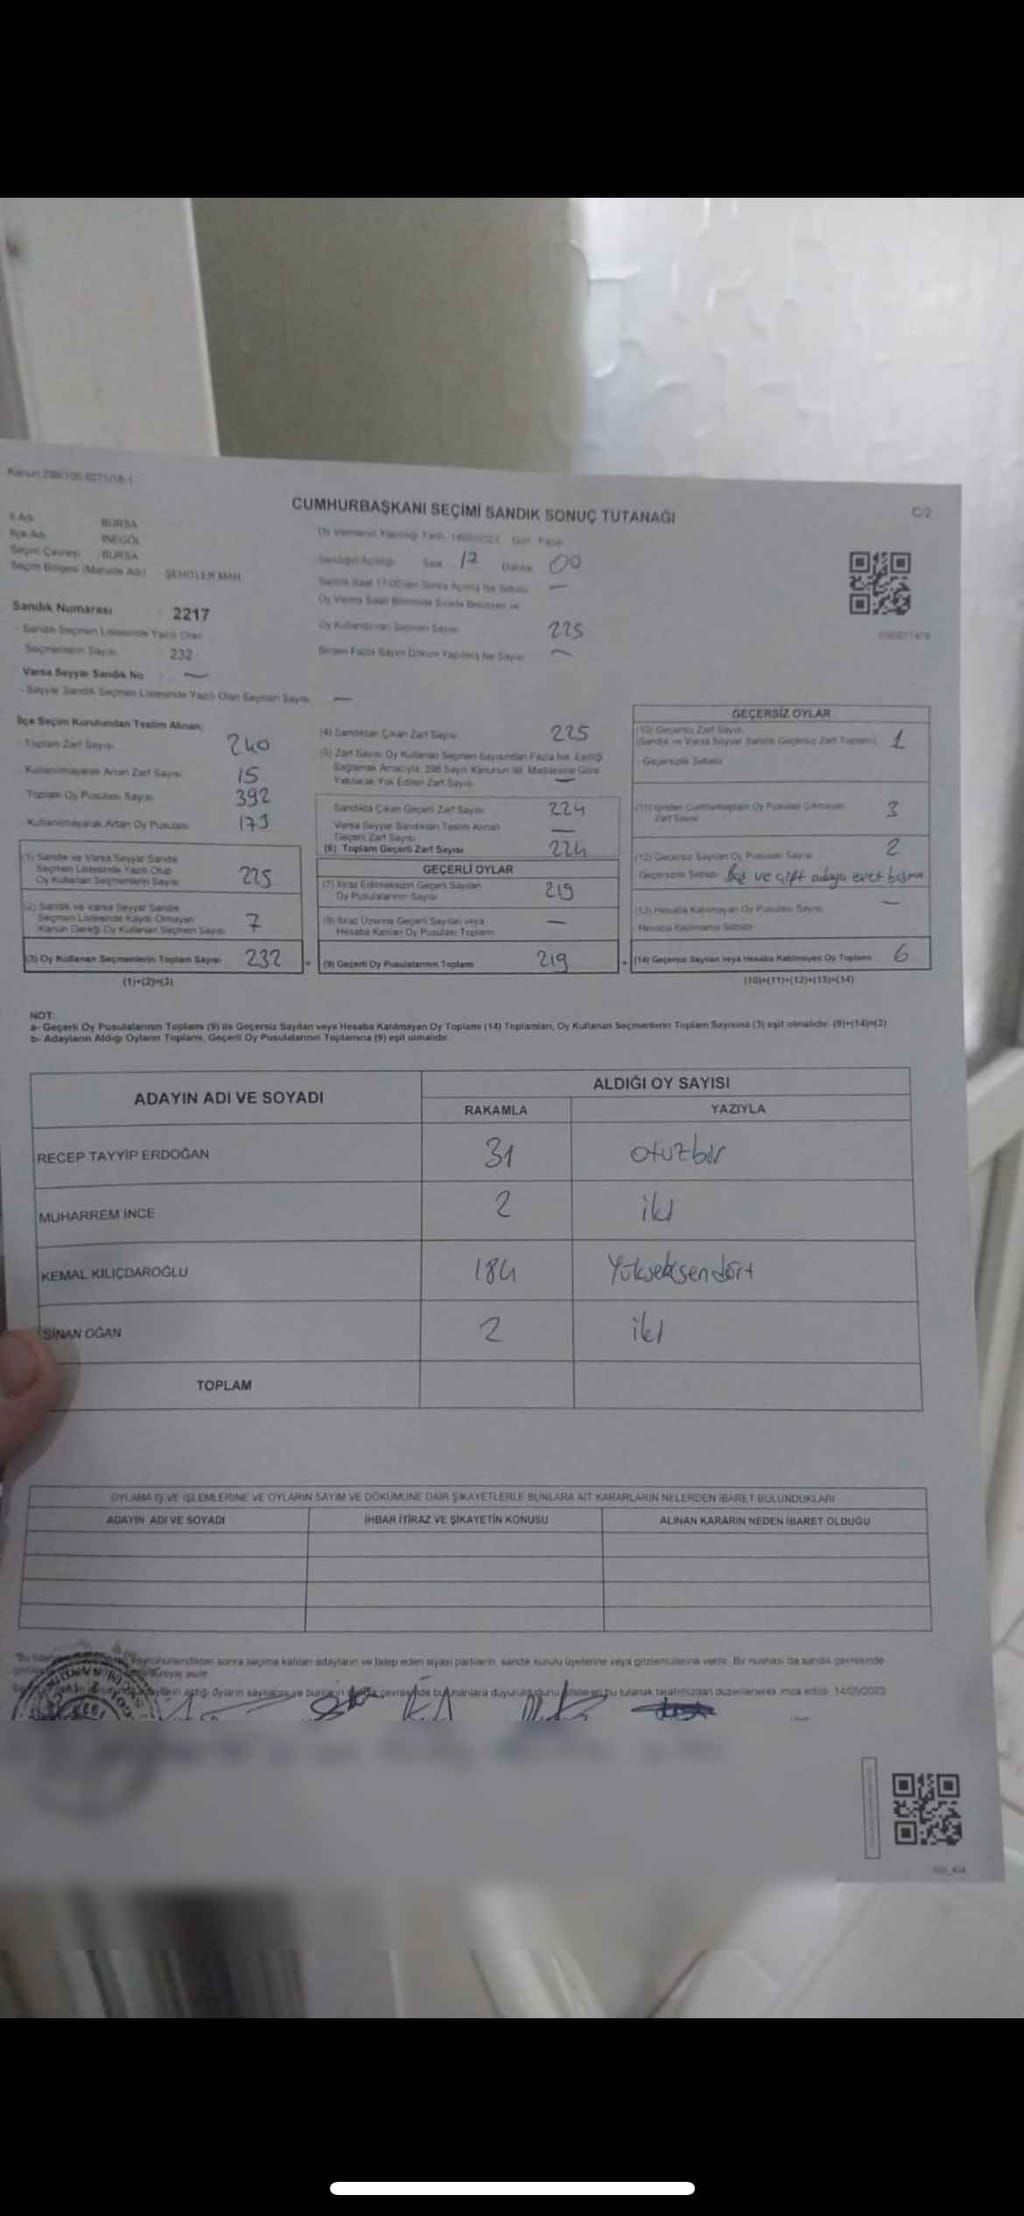 CUMHURBAŞKANI SEÇİMİ SANDIK SONUÇ TUTANAĞI
C/2
İl Adı BURSA
İlçe Adı İNEGÖL
Seçim Çevresi BURSA
Seçim Bölgesi (Mahalle Adı) ŞEHİTLER MAH.
Sandığın Açıldığı Saat 17 Dakika 00
Sandık Numarası : 2217
Sandık Seçmen Listesinde Yazılı Olan
Seçmenlerin Sayısı 232
Oy Kullandırılan Seçmen Sayısı 225
Birden Fazla Sayım Döküm Yapılmış İse Sayısı —
Varsa Seyyar Sandık No : —
- Seyyar Sandık Seçmen Listesinde Yazılı Olan Seçmen Sayısı —
İlçe Seçim Kurulundan Teslim Alınan;
- Toplam Zarf Sayısı 240
- Kullanılmayarak Artan Zarf Sayısı 15
- Toplam Oy Pusulası Sayısı 392
- Kullanılmayarak Artan Oy Pusulası
(1) Sandık ve Varsa Seyyar Sandık
Seçmen Listesinde Yazılı Olup
Oy Kullanan Seçmenlerin Sayısı 225
(2) Sandık ve Varsa Seyyar Sandık
Seçmen Listesinde Kayıtlı Olmayan
Kanun Gereği Oy Kullanan Seçmen Sayısı 7
(3) Oy Kullanan Seçmenlerin Toplam Sayısı 232
(1)+(2)=(3)
(4) Sandıktan Çıkan Zarf Sayısı 225
(5) Zarf Sayısı Oy Kullanan Seçmen Sayısından Fazla İse, Eşitliği
Sağlamak Amacıyla, 298 Sayılı Kanunun 98. Maddesine Göre
Yakılarak Yok Edilen Zarf Sayısı —
Sandıkta Çıkan Geçerli Zarf Sayısı 224
Varsa Seyyar Sandıktan Teslim Alınan
Geçerli Zarf Sayısı —
(6) Toplam Geçerli Zarf Sayısı 224
GEÇERLİ OYLAR
(7) İtiraz Edilmeksizin Geçerli Sayılan
Oy Pusulalarının Sayısı 219
(8) İtiraz Üzerine Geçerli Sayılan veya
Hesaba Katılan Oy Pusulası Toplamı —
(9) Geçerli Oy Pusulalarının Toplamı 219
GEÇERSİZ OYLAR
(10) Geçersiz Zarf Sayısı
(Sandık ve Varsa Seyyar Sandık Geçersiz Zarf Toplamı) 1
- Geçersizlik Sebebi
(11) İçinden Cumhurbaşkanı Oy Pusulası Çıkmayan
Zarf Sayısı 3
(12) Geçersiz Sayılan Oy Pusulası Sayısı 2
Geçersizlik Sebebi Boş ve çift adaya evet basma
(13) Hesaba Katılmayan Oy Pusulası Sayısı —
- Hesaba Katılmama Sebebi
(14) Geçersiz Sayılan veya Hesaba Katılmayan Oy Toplamı 6
(10)+(11)+(12)+(13)=(14)
NOT:
a- Geçerli Oy Pusulalarının Toplamı (9) ile Geçersiz Sayılan veya Hesaba Katılmayan Oy Toplamı (14) Toplamları, Oy Kullanan Seçmenlerin Toplam Sayısına (3) eşit olmalıdır. (9)+(14)=(3)
b- Adayların Aldığı Oyların Toplamı, Geçerli Oy Pusulalarının Toplamına (9) eşit olmalıdır.
ADAYIN ADI VE SOYADI ALDIĞI OY SAYISI
RAKAMLA YAZIYLA
RECEP TAYYİP ERDOĞAN 31 otuzbir
MUHARREM İNCE 2 iki
KEMAL KILIÇDAROĞLU 184 Yükseksendört
SİNAN OĞAN 2 iki
TOPLAM
OYLAMA İŞ VE İŞLEMLERİNE VE OYLARIN SAYIM VE DÖKÜMÜNE DAİR ŞİKAYETLERLE BUNLARA AİT KARARLARIN NELERDEN İBARET BULUNDUKLARI
ADAYIN ADI VE SOYADI İHBAR İTİRAZ VE ŞİKAYETİN KONUSU ALINAN KARARIN NEDEN İBARET OLDUĞU
sonra seçime katılan adayların ve talep eden siyasi partilerin, sandık kurulu üyelerine veya gözlemcilerine verilir. Bir nüshası da sandık çevresinde
aldığı oyların sayılarını ve çevresinde bulunanlara duyurulduğunu gösteren bu tutanak tarafımızdan düzenlenerek imza edildi. 14/05/2023